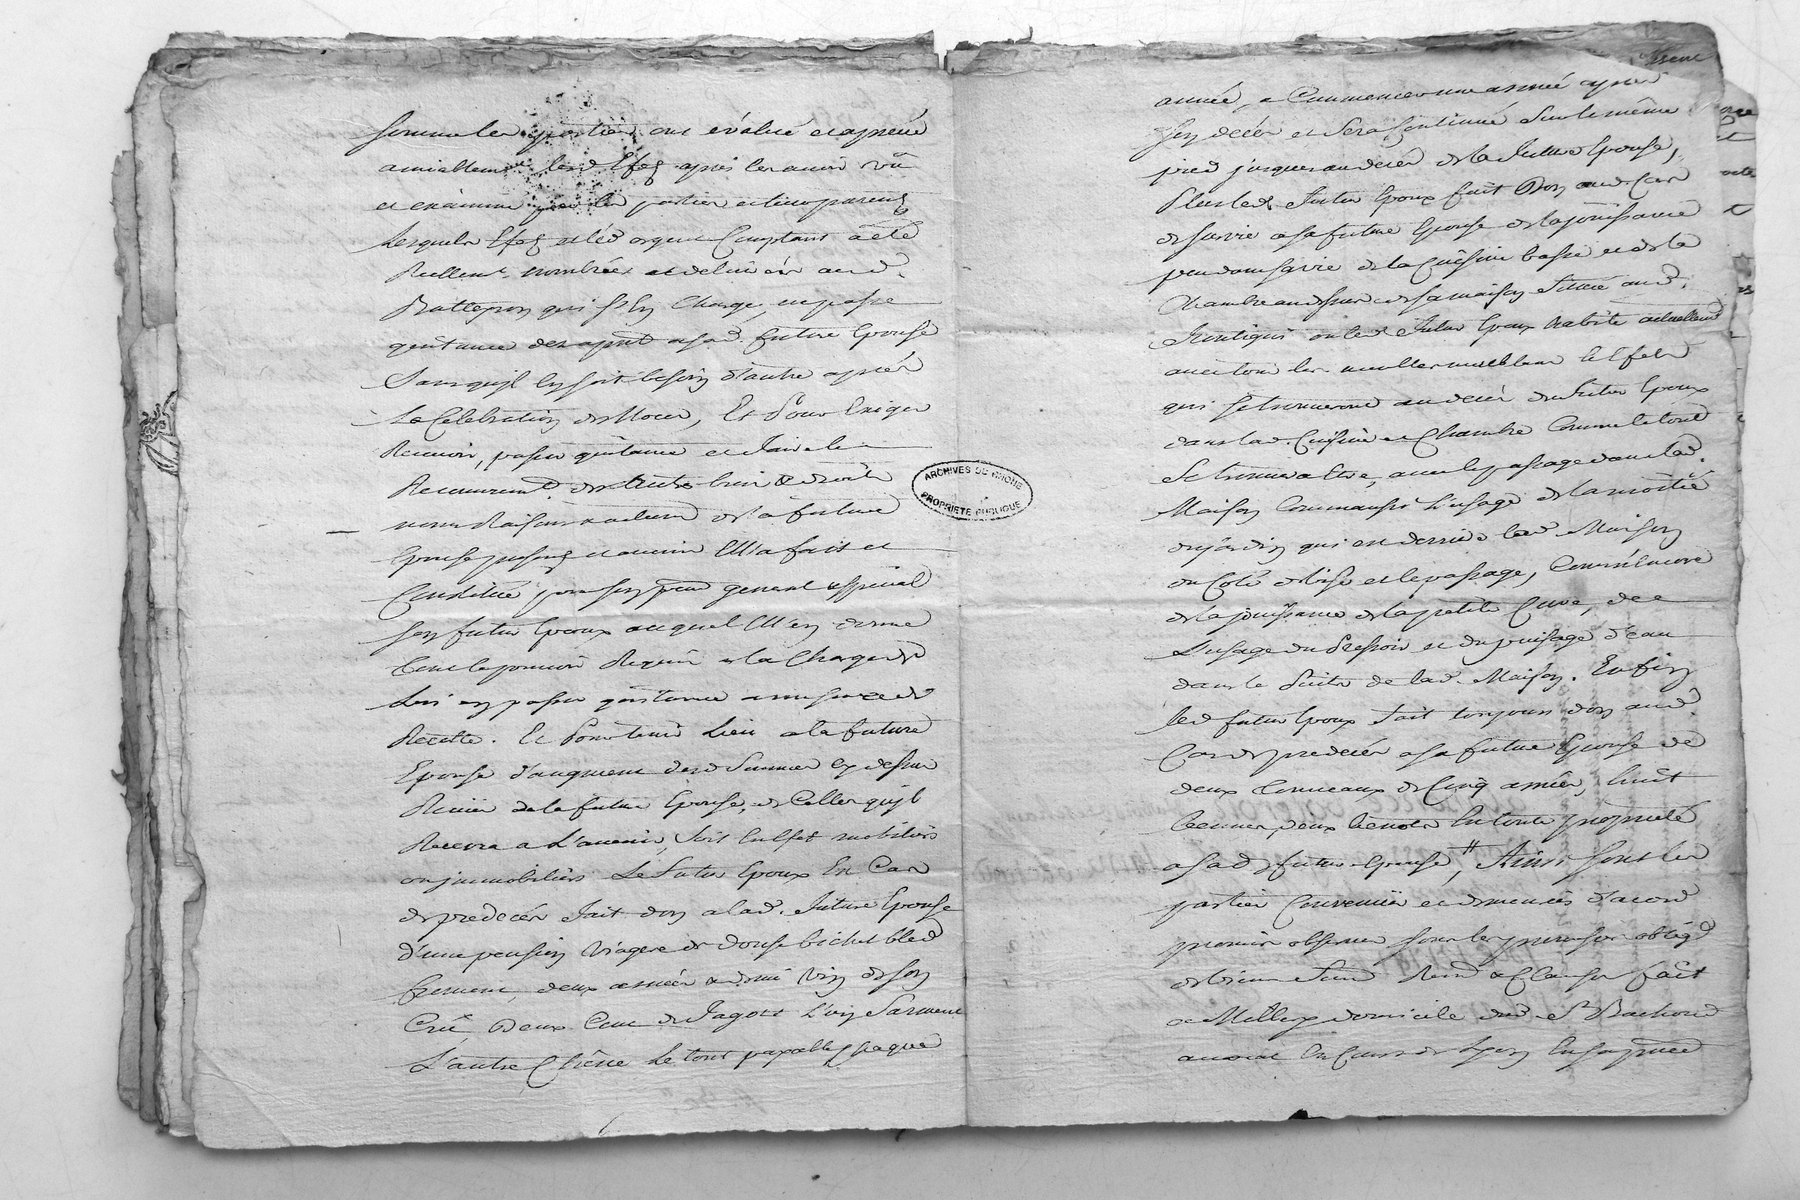 somme les parties ont évalué et aprecié
amiablement lesd. Effets après les avoir vû
et examiné par les parties et leurs parents
lesquels Effets et led. argent Comptant a été
Réellemt. nombrée et delivrée aud.
qui s'en Charge, en passe
quitance des aprésent a sad. future Epouse
sans qu'il en soit besoin d'autre après
La Celebration de Noces, Et Pour Exiger
Recevoir, passer quitance et faire le
Recouvremt. de tous les biens & droits
noms Raisons & actions de la future
Epouse présents et avenir Elle a fait et
Constitué pour son preur. general & spécial
son futur Epoux auquel Elle en donne
tout le pouvoir Requis a la Charge de
Lui en passer quitance a mesure de
Recette. Et Pour tenir Lieu a la future
Epouse d'augment desd. Sommes cy dessus
de la future Epouse, et Celles qu'il
Recevra a L'avenir, soit en Effet mobiliers
ou immobiliers Le futur Epoux En Cas
de predecès fait don a lad. future Epouse
d'une pension viagere de douse bichet bled
froment, deux anée & demi vin de son
Crû, deux Cent de fagots L'un Sarment
L'autre Chêne Le tout payable chaque
année, a Commencer une année après
son decès et sera Continué sur le même
pied jusques au decès de la future Epouse,
Plus led. futur Epoux fait Don aud. Cas
de survie a sa future Epouse de la jouissance
pendant sa vie de la Cuisine basse et de la
Chambre au dessus de sa maison située aud.
ou led. futur Epoux habite actuellemt.
avec tous les meubles meublans & Effets
qui se trouveront au decès du futur Epoux
dans lad. Cuisine et Chambre Comme le tout
se trouvera Etre, avec le passage dans lad.
Maison Comme aussi L'usage de la moitié
du jardin qui est derrière lad. Maison
du Coté de bise et le passage, Comme encore
de la jouissance de la petite Cuve, de
L'usage du Pressoir et du puisage d'eau
dans le Puits de lad. Maison. Enfin
led. futur Epoux fait toujours don aud.
Cas de predecès a sa future Epouse de
deux Tonneaux de Cinq anées, huit
bennes, deux en toute proprieté
a sad. future Epouse, # Ainsi sont les
parties Convenües et demeurées d'acord
promis observer sous les peines obligd.
de biens Renond. & Clauses fait
a Millery domicile dud. Sr.
avocat En Cour de Lyon En sa presence
ARCHIVES DU RHONE
PROPRIETE PUBLIQUE